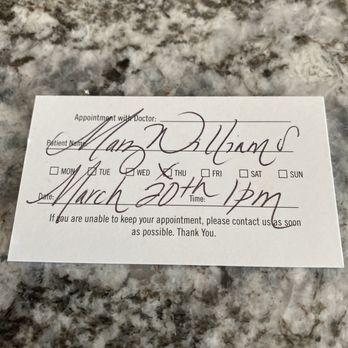 Appointment with Doctor:
Patient Name: Mary Williams
MON TUE WED X THU FRI SAT SUN
Date: March 20th Time: 1pm
If you are unable to keep your appointment, please contact us as soon
as possible. Thank You.